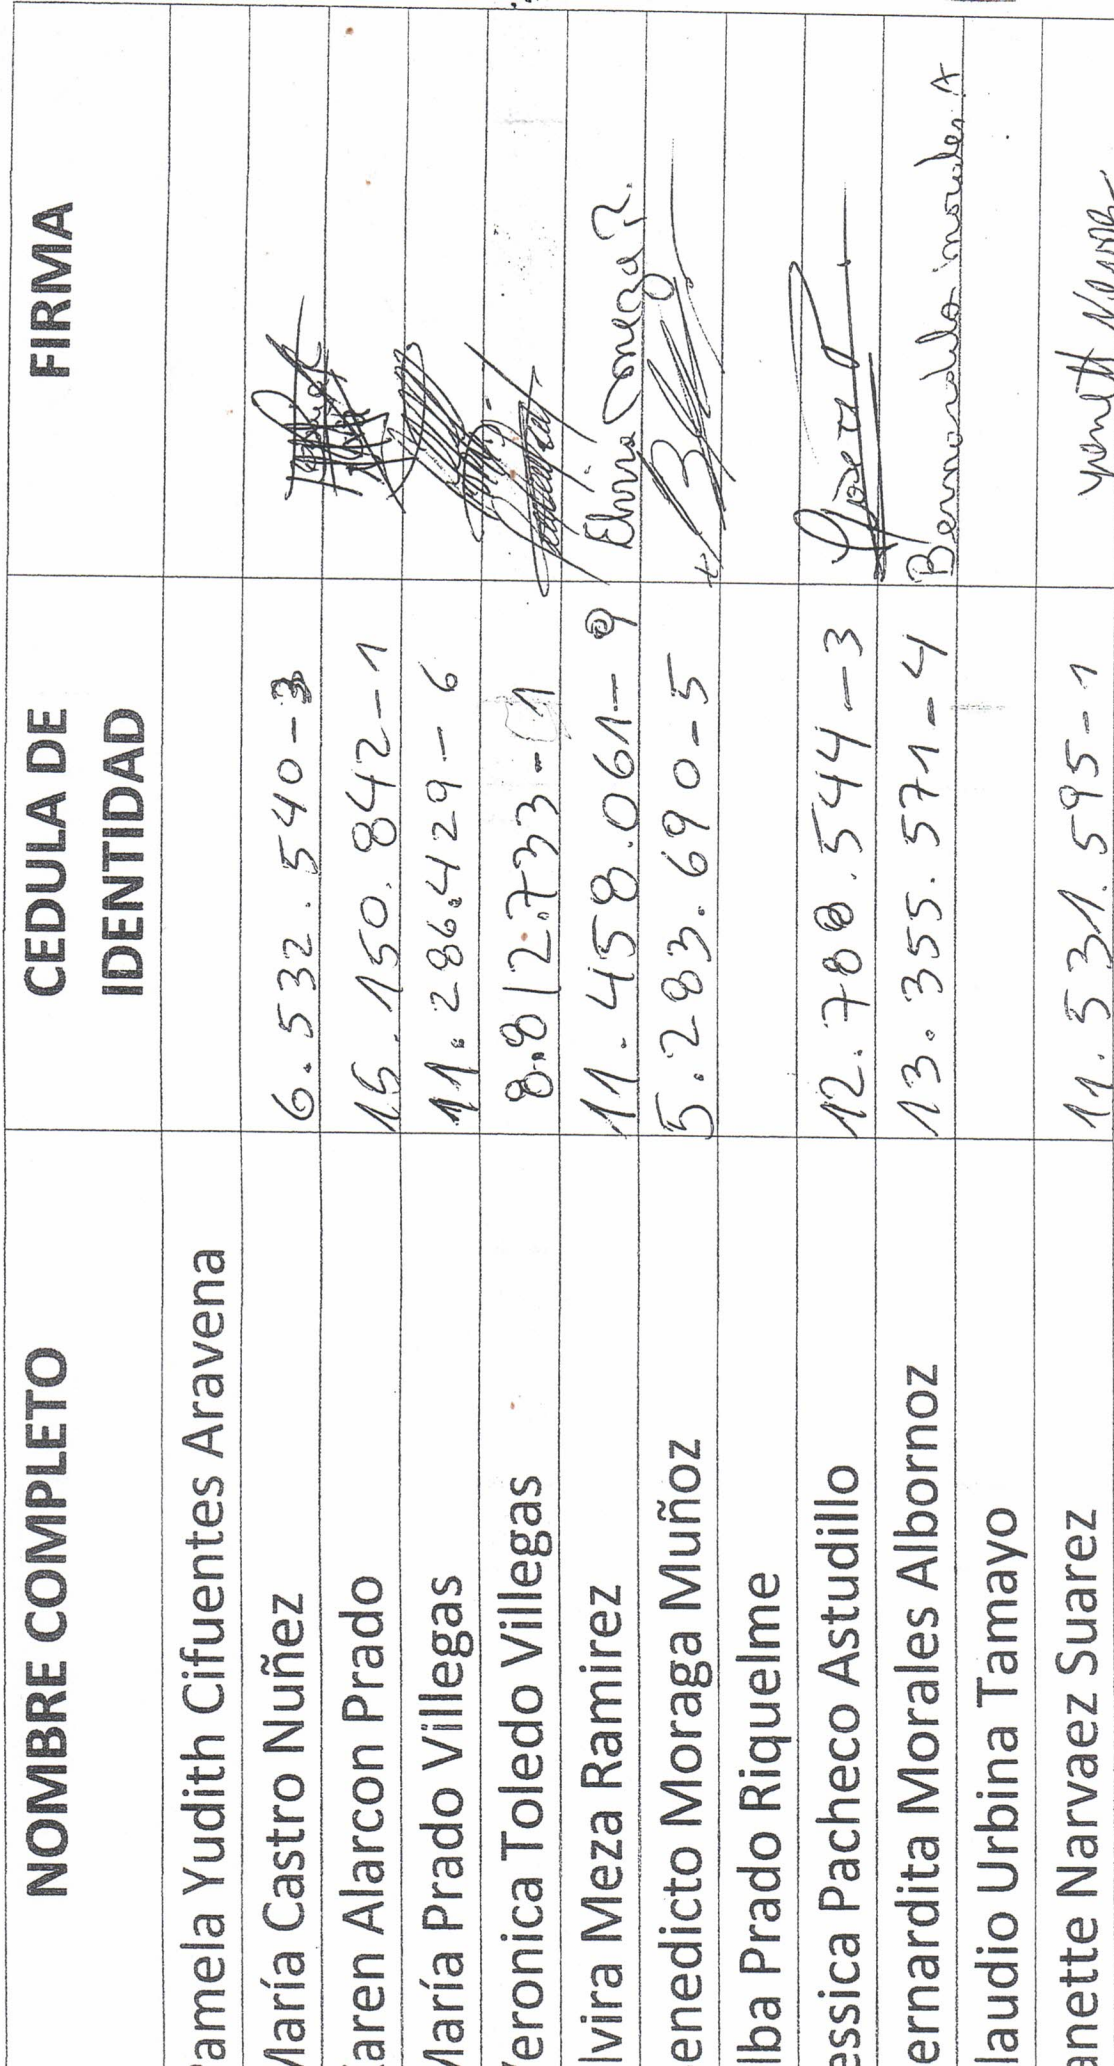 NOMBRE COMPLETO CEDULA DE IDENTIDAD FIRMA
amela Yudith Cifuentes Aravena
María Castro Nuñez 6.532.540-3
aren Alarcon Prado 15.150.842-1
María Prado Villegas 11.286.429-6
eronica Toledo Villegas 8.812.733-1
lvira Meza Ramirez 11.458.061-9 Elvira meza R.
enedicto Moraga Muñoz 5.283.690-5
lba Prado Riquelme
essica Pacheco Astudillo 12.788.544-3
ernardita Morales Albornoz 13.355.571-4 Bernardita morales A
laudio Urbina Tamayo
anette Narvaez Suarez 11.531.595-1